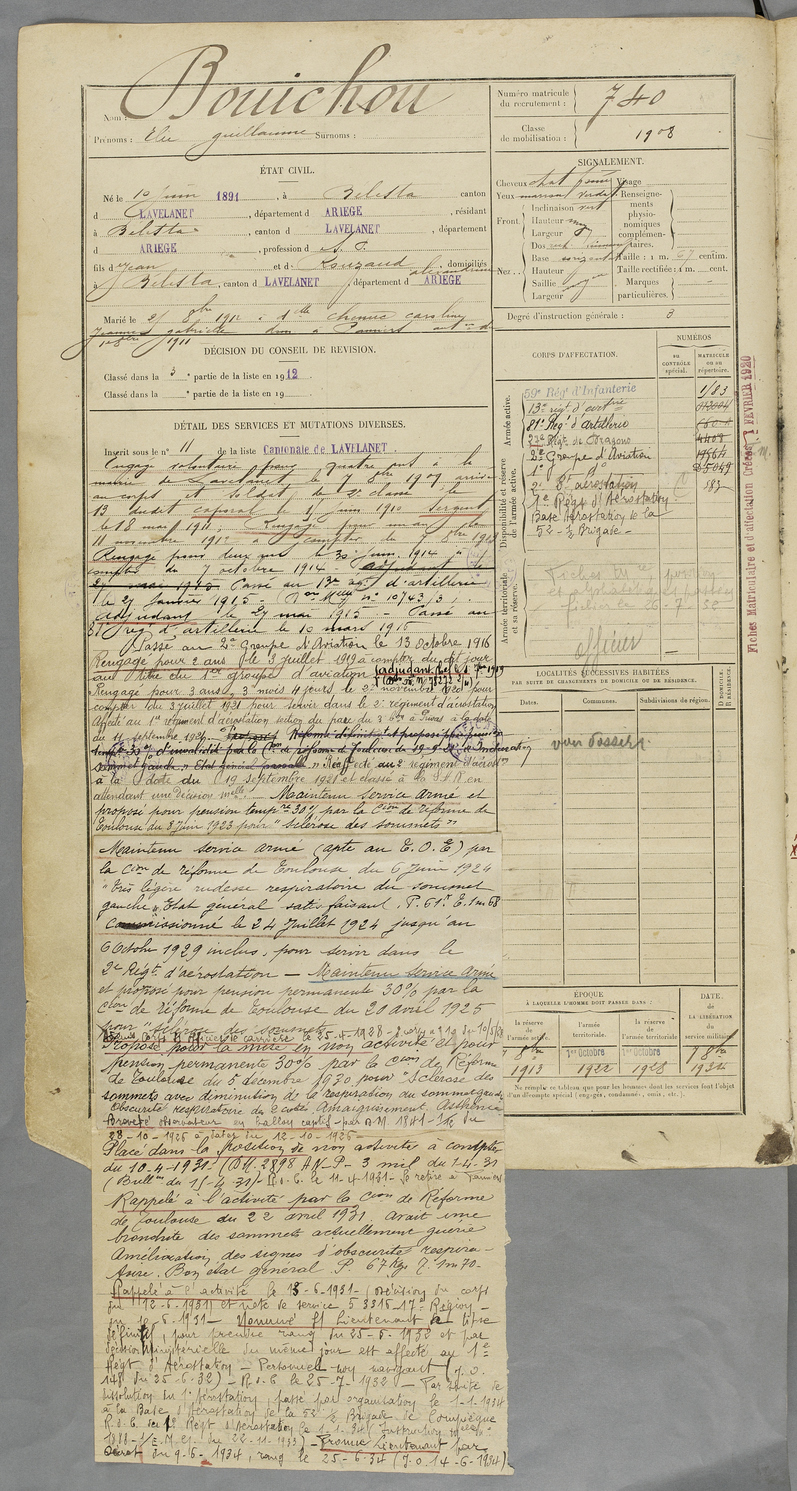 Nom : Bouichou
Prénoms : Elie Guillaume Surnoms :
ÉTAT CIVIL.
Né le 10 juin 1891, à Belesta canton
d LAVELANET, département d ARIEGE, résidant
à Belesta, canton d LAVELANET, département
d ARIEGE, profession d
fils d Jean et d Rouzaud Alexandrine, domiciliés
à Belesta, canton d LAVELANET, département d ARIEGE
Marié le 8bre 1912 à Dlle Caroline
Jeanne Gabrielle à Pamiers
1911
DÉCISION DU CONSEIL DE REVISION.
Classé dans la 3e partie de la liste en 1912
Classé dans la e partie de la liste en 19
DÉTAIL DES SERVICES ET MUTATIONS DIVERSES.
Inscrit sous le n° 11 de la liste Cantonale de LAVELANET.
Engagé volontaire pour quatre ans à la
mairie de Lavelanet le 7 8bre 1909 arrivé
au corps et soldat de 2e classe le
13 dudit caporal le 1 juin 1910 Sergent
le 18 mai 1911, Rengagé pour un an
11 novembre 1912 à compter du 7 8bre 1913
Rengagé pour deux ans le 30 juin 1914 à
compter du 7 octobre 1914. adjudant le
27 mai 1915 Passé au 13e régt d'artillerie
le 27 janvier 1915 - Mlle n° 10743/3.
adjudant le 27 mai 1915 - Passé au
81e rég. d'artillerie le 10 mars 1915
Passé au 2e Groupe d'Aviation le 13 Octobre 1916
Rengagé pour 2 ans le 3 juillet 1919 à compter du dit jour
au titre du 1er groupe d'aviation adjudant chef
Rengagé pour 3 ans, 3 mois 4 jours le 2 novembre 1920 pour
compter du 3 juillet 1921 pour servir dans le 2e régiment d'aérostation
Affecté au 1er régiment d'aérostation section du parc à la date
du 11 septembre 1921.
Réaffecté au 2e régiment d'aérostation
à la date du 19 septembre 1921 et classé à la S.H.R. en
attendant une décision mlle. - Maintenu Service Armé et
proposé pour pension tempre 30% par la Cion de réforme de
Toulouse du 8 juin 1923 pour "Sclérose des sommets"
Maintenu Service armé (apte au T.O.E) par
la Cion de réforme de Toulouse du 6 Juin 1924
"très légère rudesse respiratoire du sommet
gauche, Etat général satisfaisant. P. 61K T. 1m68
Commissionné le 24 Juillet 1924 jusqu'au
6 Octobre 1929 inclus, pour servir dans le
2e Régt d'aérostation - Maintenu Service Armé
et proposé pour pension permanente 30% par la
Cion de réforme de Toulouse du 20 avril 1925
pour "Sclérose des sommets"
carrière le 25-5-1928
Proposé pour la mise en non activité et pour
pension permanente 30% par la Cion de Réforme
de Toulouse du 5 décembre 1930 pour "Sclérose des
sommets avec diminution de la respiration du sommet gauche
obscurité respiratoire des 2 côtés Amaigrissement. Asthénie
Breveté observateur en ballon captif par D.M. 1841-1/12 du
28-10-1926 à dater du 12-10-1926 -
Placé dans la position de non activité à compter
du 10-4-1931 (D.M. 2898 A.N.P. 3 mil du 1-4-31
(Bull. du 15-4-31) R.d.C. le 11-4-1931 - Se retire à Pamiers
Rappelé à l'activité par la Cion de Réforme
de Toulouse du 22 avril 1931. avait une
bronchite des sommets actuellement guérie
Amélioration des signes d'obscurité respira-
toire. Bon état général P. 67 Kgs T. 1m70 -
Rappelé à l'activité le 13-6-1931 (décision du corps
du 12-6-1931) et note de service 5331S-17e Région -
du 10-6-1931 - Nommé S/ Lieutenant à titre
définitif, pour prendre rang du 25-6-1932 et par
décision Ministérielle du même jour est affecté au 1er
Régt d'Aérostation - Personnel non navigant (J.O.
148 du 25-6-32) - R.d.C. le 25-7-1932 - Par suite de
dissolution du 1er Aérostation, passé par organisation le 1-1-1934
à la Base d'Aérostation de la 52e 1/2 Brigade de Compiègne
R.d.C. du 1er Régt d'Aérostation le 1-1-34 (Instruction
1818-1/E.M.G. du 22-11-1933) - Promu Lieutenant par
décret du 9-6-1934, rang le 25-6-34 (J.O. 14-6-1934)
Numéro matricule du recrutement : 740
Classe de mobilisation : 1908
SIGNALEMENT.
Cheveux Visage
Yeux marron
Front Inclinaison vert
Hauteur moy
Largeur
Nez Dos
Base
Hauteur
Saillie
Largeur
Renseignements physionomiques complémentaires.
Taille : 1 m. 67 centim.
Taille rectifiée : 1 m. cent.
Marques particulières.
Degré d'instruction générale : 3
CORPS D'AFFECTATION.
NUMÉROS
AU CONTRÔLE spécial.
MATRICULE ou au répertoire.
Armée active.
Disponibilité et réserve de l'armée active.
Armée territoriale et sa réserve.
59e Rég d'Infanterie 1183
13e régt d'artrie
81e Rég d'Artillerie
22e Régt de Dragons
2e Groupe d'Aviation
1er do
2e Bt aérostation 583
1er Régt d'Aérostation
Base Aérostation de la
52-1/2 Brigade -
officier
Fiches Matriculaire et d'affectation Créées 1 FEVRIER 1920
LOCALITÉS SUCCESSIVES HABITÉES
PAR SUITE DE CHANGEMENTS DE DOMICILE OU DE RÉSIDENCE.
Dates. Communes. Subdivisions de région. D. DOMICILE. R. RÉSIDENCE.
voir dossier
ÉPOQUE
À LAQUELLE L'HOMME DOIT PASSER DANS :
DATE DE LA LIBÉRATION du service militaire
la réserve de l'armée active. l'armée territoriale. la réserve de l'armée territoriale.
7 8bre 1913
1er Octobre 1922
1er Octobre 1928
7 8bre 1934
Ne remplir ce tableau que pour les hommes dont les services font l'objet
d'un décompte spécial (engagés, condamnés, omis, etc.).